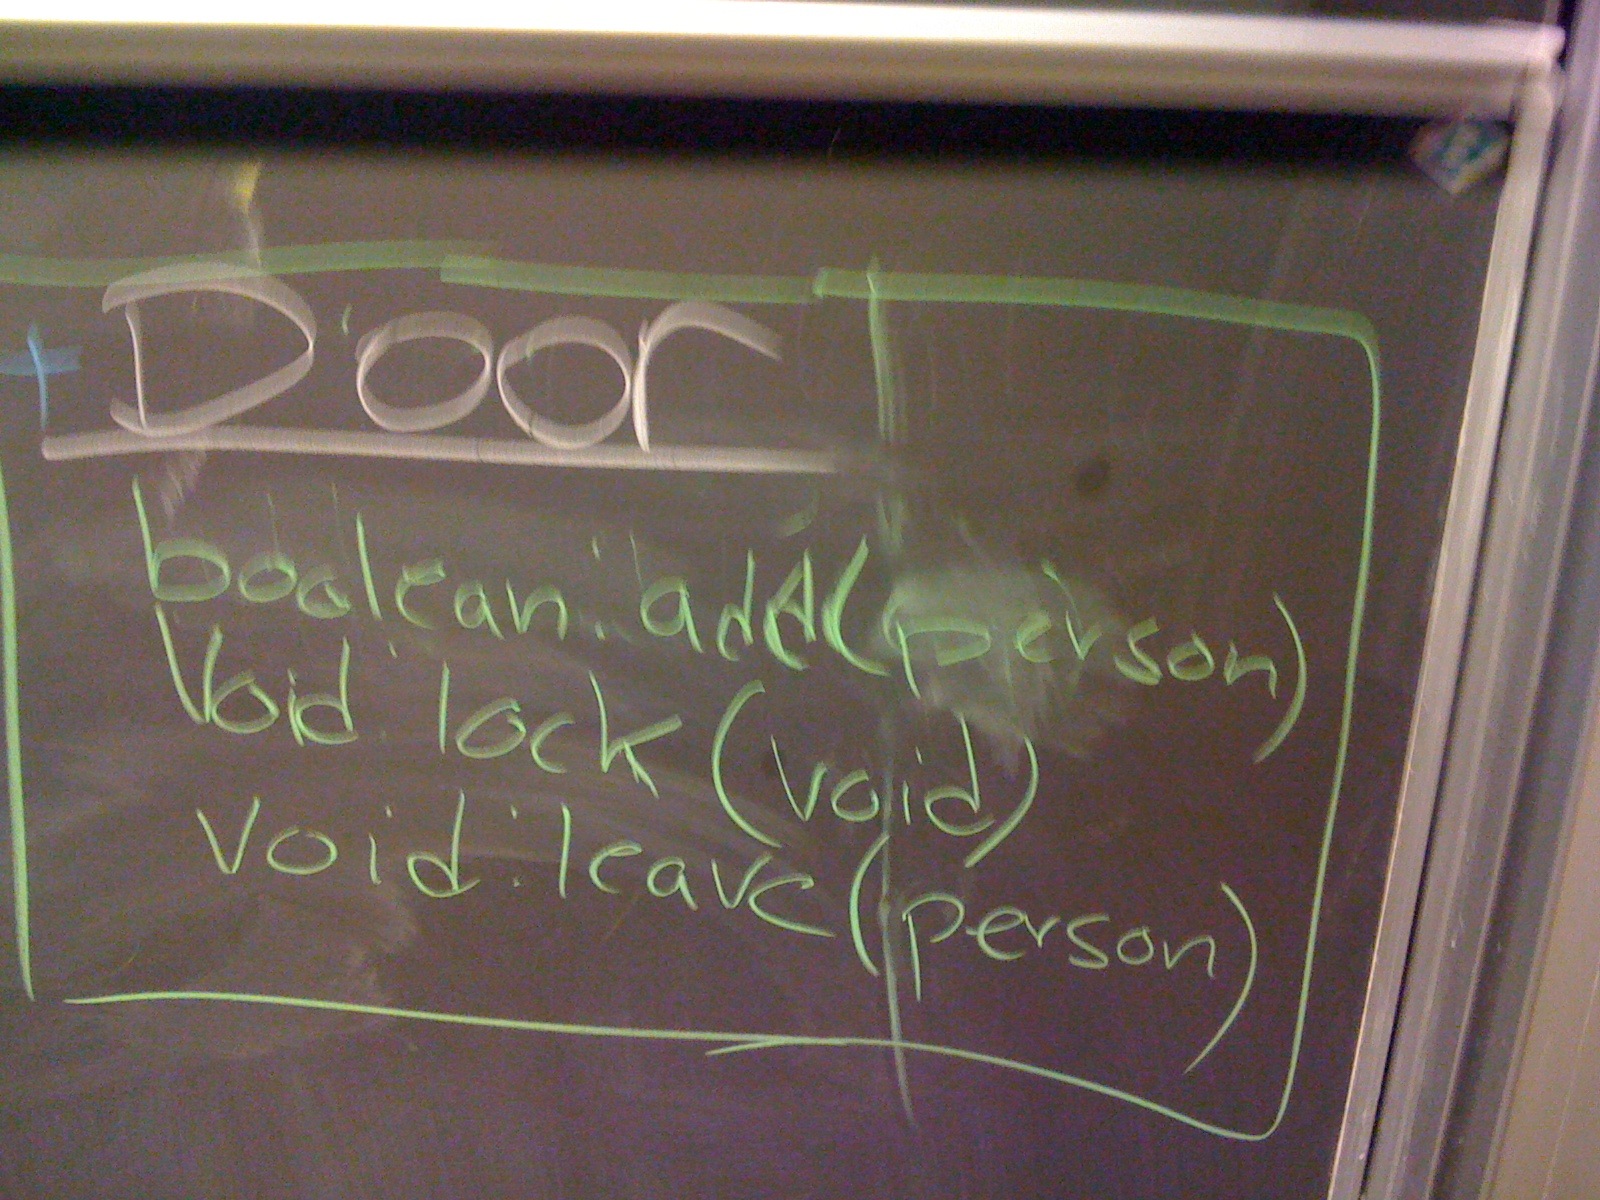 Door
boolean: add(person)
Void lock (void)
void: leave(person)